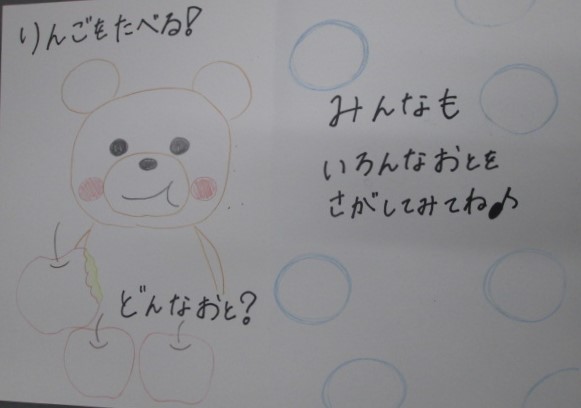 りんごもたべる!
どんなおと?
みんなも
いろんなおとを
さがしてみてね♪